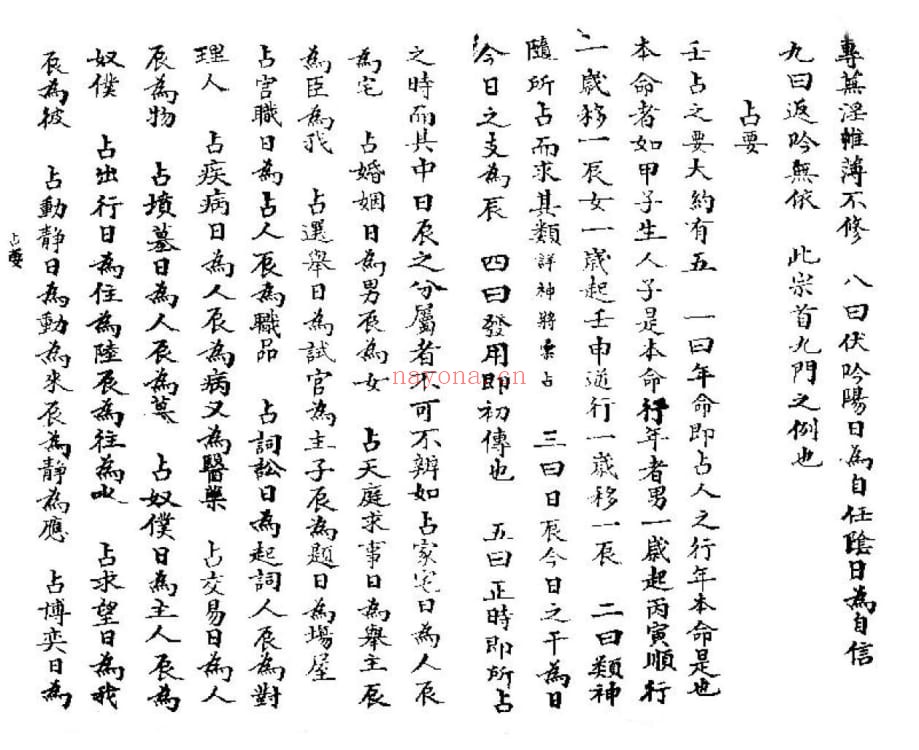 專蕪淫帷薄不修　八曰伏吟陽日為自任陰日為自信
九曰返吟無依　此宗首九門之例也
占要
壬占之要大約有五　一曰年命即占人之行年本命是也
本命者如甲子生人子是本命行年者男一歲起丙寅順行
一歲移一辰女一歲起壬申逆行一歲移一辰　二曰類神
隨所占而求其類詳神將彙占　三曰日辰今日之干為日
今日之支為辰　四曰發用即初傳也　五曰正時即所占
之時而其中日辰之分屬者不可不辨如占家宅日為人辰
為宅　占婚姻日為男辰為女　占天庭求事日為舉主辰
為臣為我　占選舉日為試官為主子辰為題日為場屋
占官職日為占人辰為職品　占詞訟日為起詞人辰為對
理人　占疾病日為人辰為病又為醫藥　占交易日為人
辰為物　占墳墓日為人辰為墓　占奴僕日為主人辰為
奴僕　占出行日為住為陸辰為往為水　占求望日為我
辰為彼　占動靜日為動為來辰為靜為應　占博奕日為
占要
nayona.cn